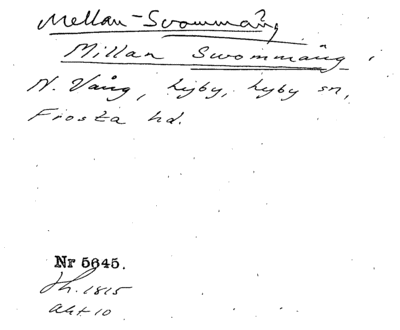 Mellan-Svommäng
Millan Swommäng i
N. Vång, Lyby, Lyby sn,
Frosta hd.
Nr 5645.
Sk. 1815
Akt 10